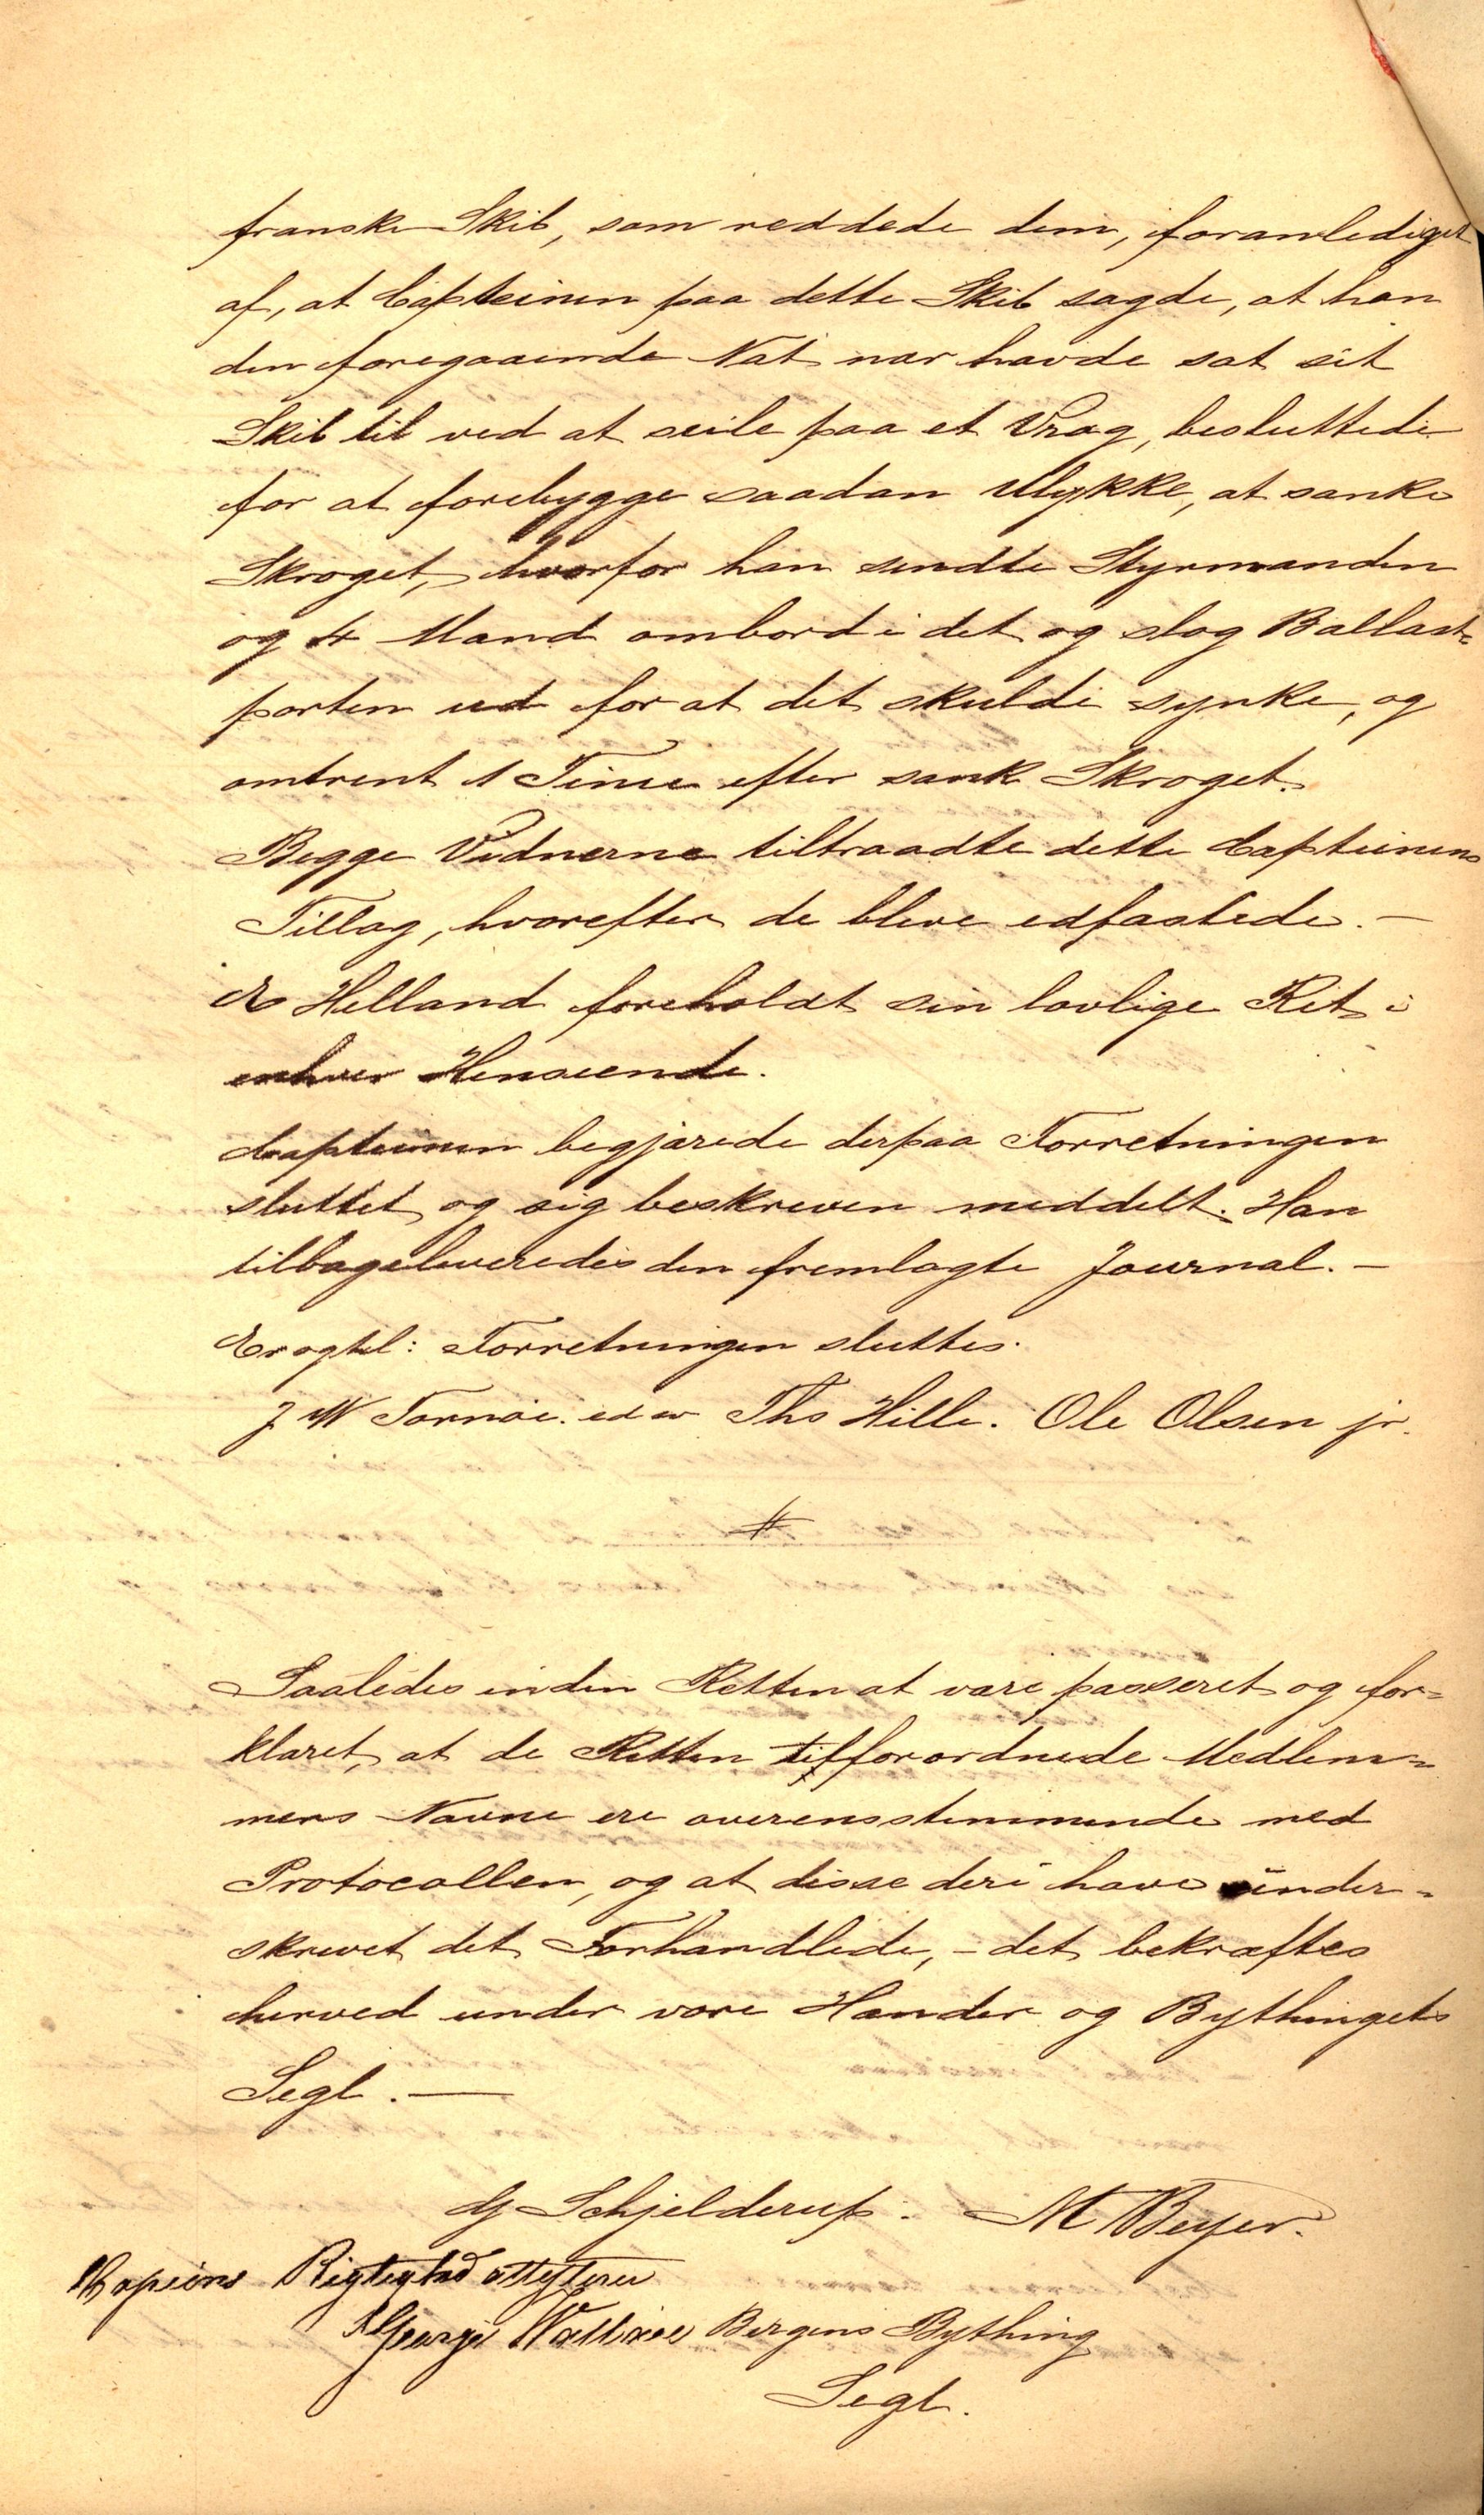 franske Skib, som reddede dem, foranlediget
af, at Capteinen paa dette Skib sagde, at han
den foregaaende Nat nær havde sat sit
Skib til ved at seile paa et Vrag, besluttede
for at forebygge saadan Ulykke, at sænke
Skroget, hvorfor han sendte Styrmanden
og 4 Mand ombord i det og slog Ballast=
porten ud for at det skulde synke, og
omtrent 1 Time efter sank Skroget.
Begge Vidnerne tiltraadte dette Capteinens
Tillæg, hvorefter de bleve edfæstede. —
Helland foreholdt sin lovlige Ret i
enhver Henseende.
Capteinen begjærede derpaa Forretningen
sluttet og sig beskreven meddelt. Han
tilbageleveredes den fremlagte Journal. —
Eragtet: Forretningen sluttes.
J W Tornøe. edsv Ths Hille. Ole Olsen jr.
#
Saaledes inden Retten at være passeret og for=
klaret, at de Retten tilforordnede Medlem=
mers Navne ere overensstemmende med
Protocollen, og at disse deri have under=
skrevet det Forhandlede, – det bekræftes
herved under vore Hænder og Bythingets
Segl. —
G Schjelderup. M Beyer.
Copiens Rigtighed attesterer
George Wallace Bergens Bything
Segl.